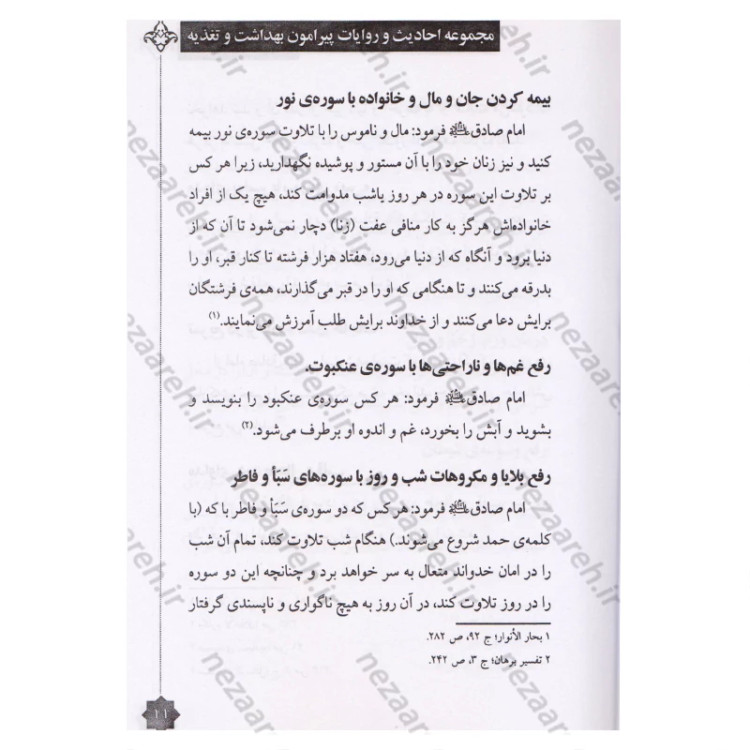 مجموعه احادیث و روایات پیرامون بهداشت و تغذیه
بیمه کردن جان و مال و خانواده با سوره‌ی نور
امام صادق علیه‌السلام فرمود: مال و ناموس را با تلاوت سوره‌ی نور بیمه
کنید و نیز زنان خود را با آن مستور و پوشیده نگهدارید، زیرا هر کس
بر تلاوت این سوره در هر روز یاشب مداومت کند، هیچ یک از افراد
خانواده‌اش هرگز به کار منافی عفت (زنا) دچار نمی‌شود تا آن که از
دنیا برود و آنگاه که از دنیا می‌رود، هفتاد هزار فرشته تا کنار قبر، او را
بدرقه می‌کنند و تا هنگامی که او را در قبر می‌گذارند، همه‌ی فرشتگان
برایش دعا می‌کنند و از خداوند برایش طلب آمرزش می‌نمایند.(۱)
رفع غم‌ها و ناراحتی‌ها با سوره‌ی عنکبوت.
امام صادق علیه‌السلام فرمود: هر کس سوره‌ی عنکبود را بنویسد و
بشوید و آبش را بخورد، غم و اندوه او برطرف می‌شود.(۲)
رفع بلایا و مکروهات شب و روز با سوره‌های سَبَأ و فاطر
امام صادق علیه‌السلام فرمود: هر کس که دو سوره‌ی سَبَأ و فاطر با که (با
کلمه‌ی حمد شروع می‌شوند.) هنگام شب تلاوت کند، تمام آن شب
را در امان خدواند متعال به سر خواهد برد و چنانچه این دو سوره
را در روز تلاوت کند، در آن روز به هیچ ناگواری و ناپسندی گرفتار
۱ بحار الأنوار؛ ج ۹۲، ص ۲۸۲.
۲ تفسیر برهان؛ ج ۳، ص ۲۴۲.
۲۱
nezaareh.ir